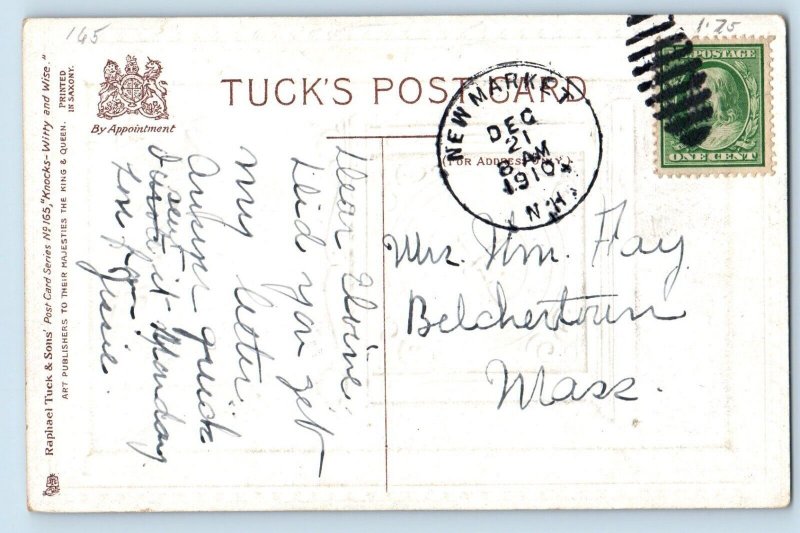 165
1.25
TUCK'S POST CARD
By Appointment
(FOR ADDRESS ONLY.)
NEWMARKET
DEC
21
8 AM
1910
N.H.
U.S. POSTAGE
ONE CENT
Raphael Tuck & Sons' Post Card Series Nº 165, "Knocks - Witty and Wise."
ART PUBLISHERS TO THEIR MAJESTIES THE KING & QUEEN.
PRINTED
IN SAXONY.
Dear
Did you get
my letter.
Answer quick
I sent
it Monday
Jessie.
Mrs. Wm. Fay
Belchertown
Mass.